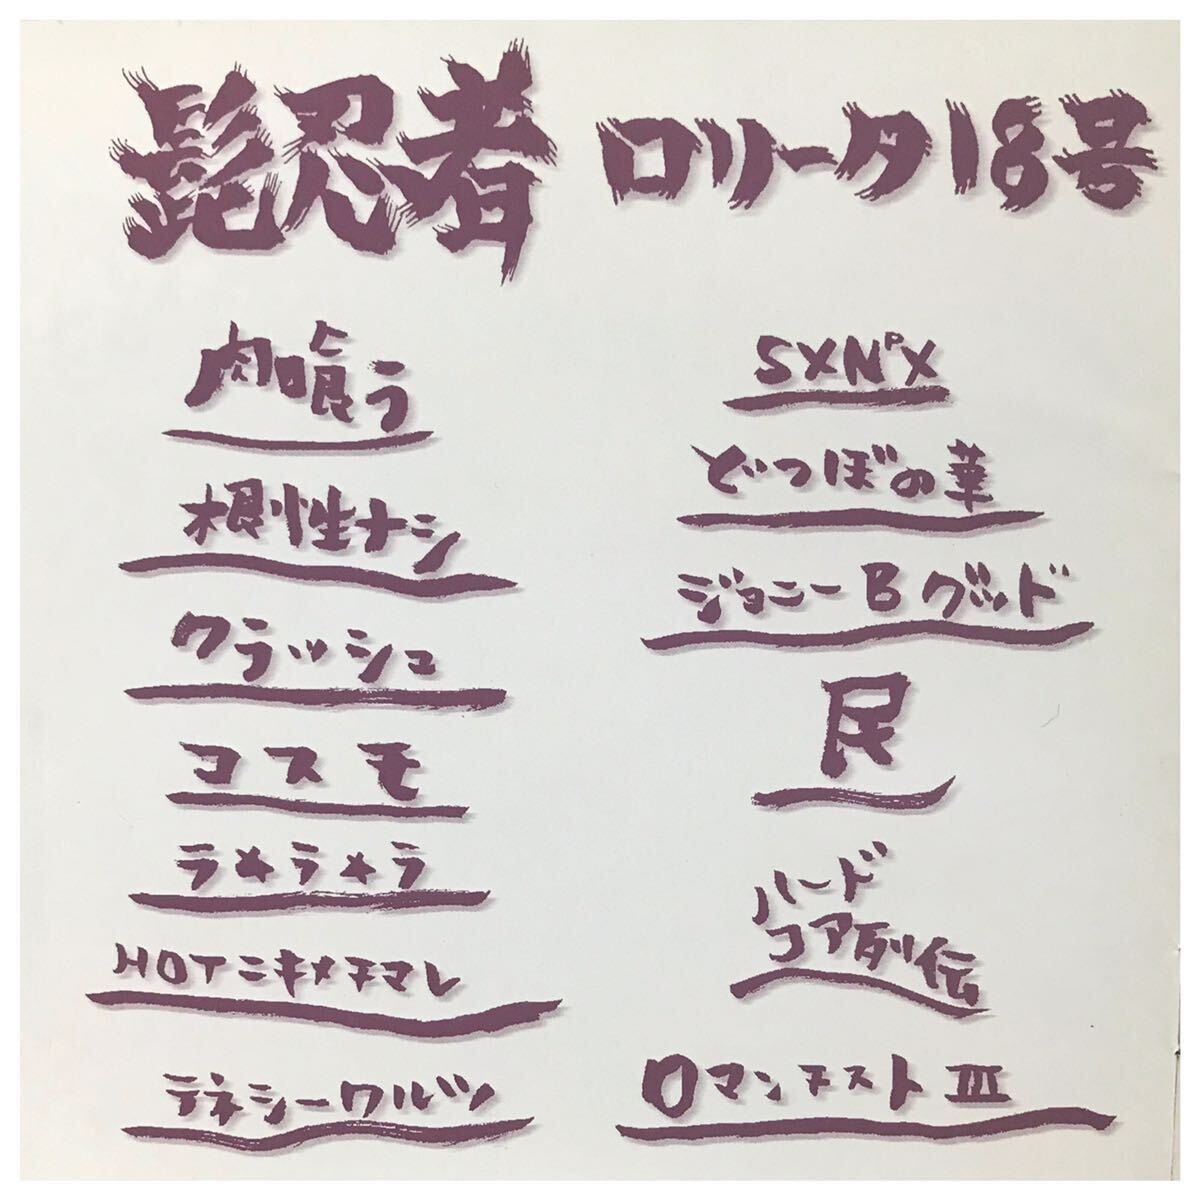 髭忍者 ロリータ18号
肉喰う
根性ナシ
クラッシュ
コスモ
ラ★ラ★ラ
HOTニキメチマレ
テネシーワルツ
SXNPX
どつぼの華
ジョニーBグッド
民
ハード
コア列伝
ロマンチスト III